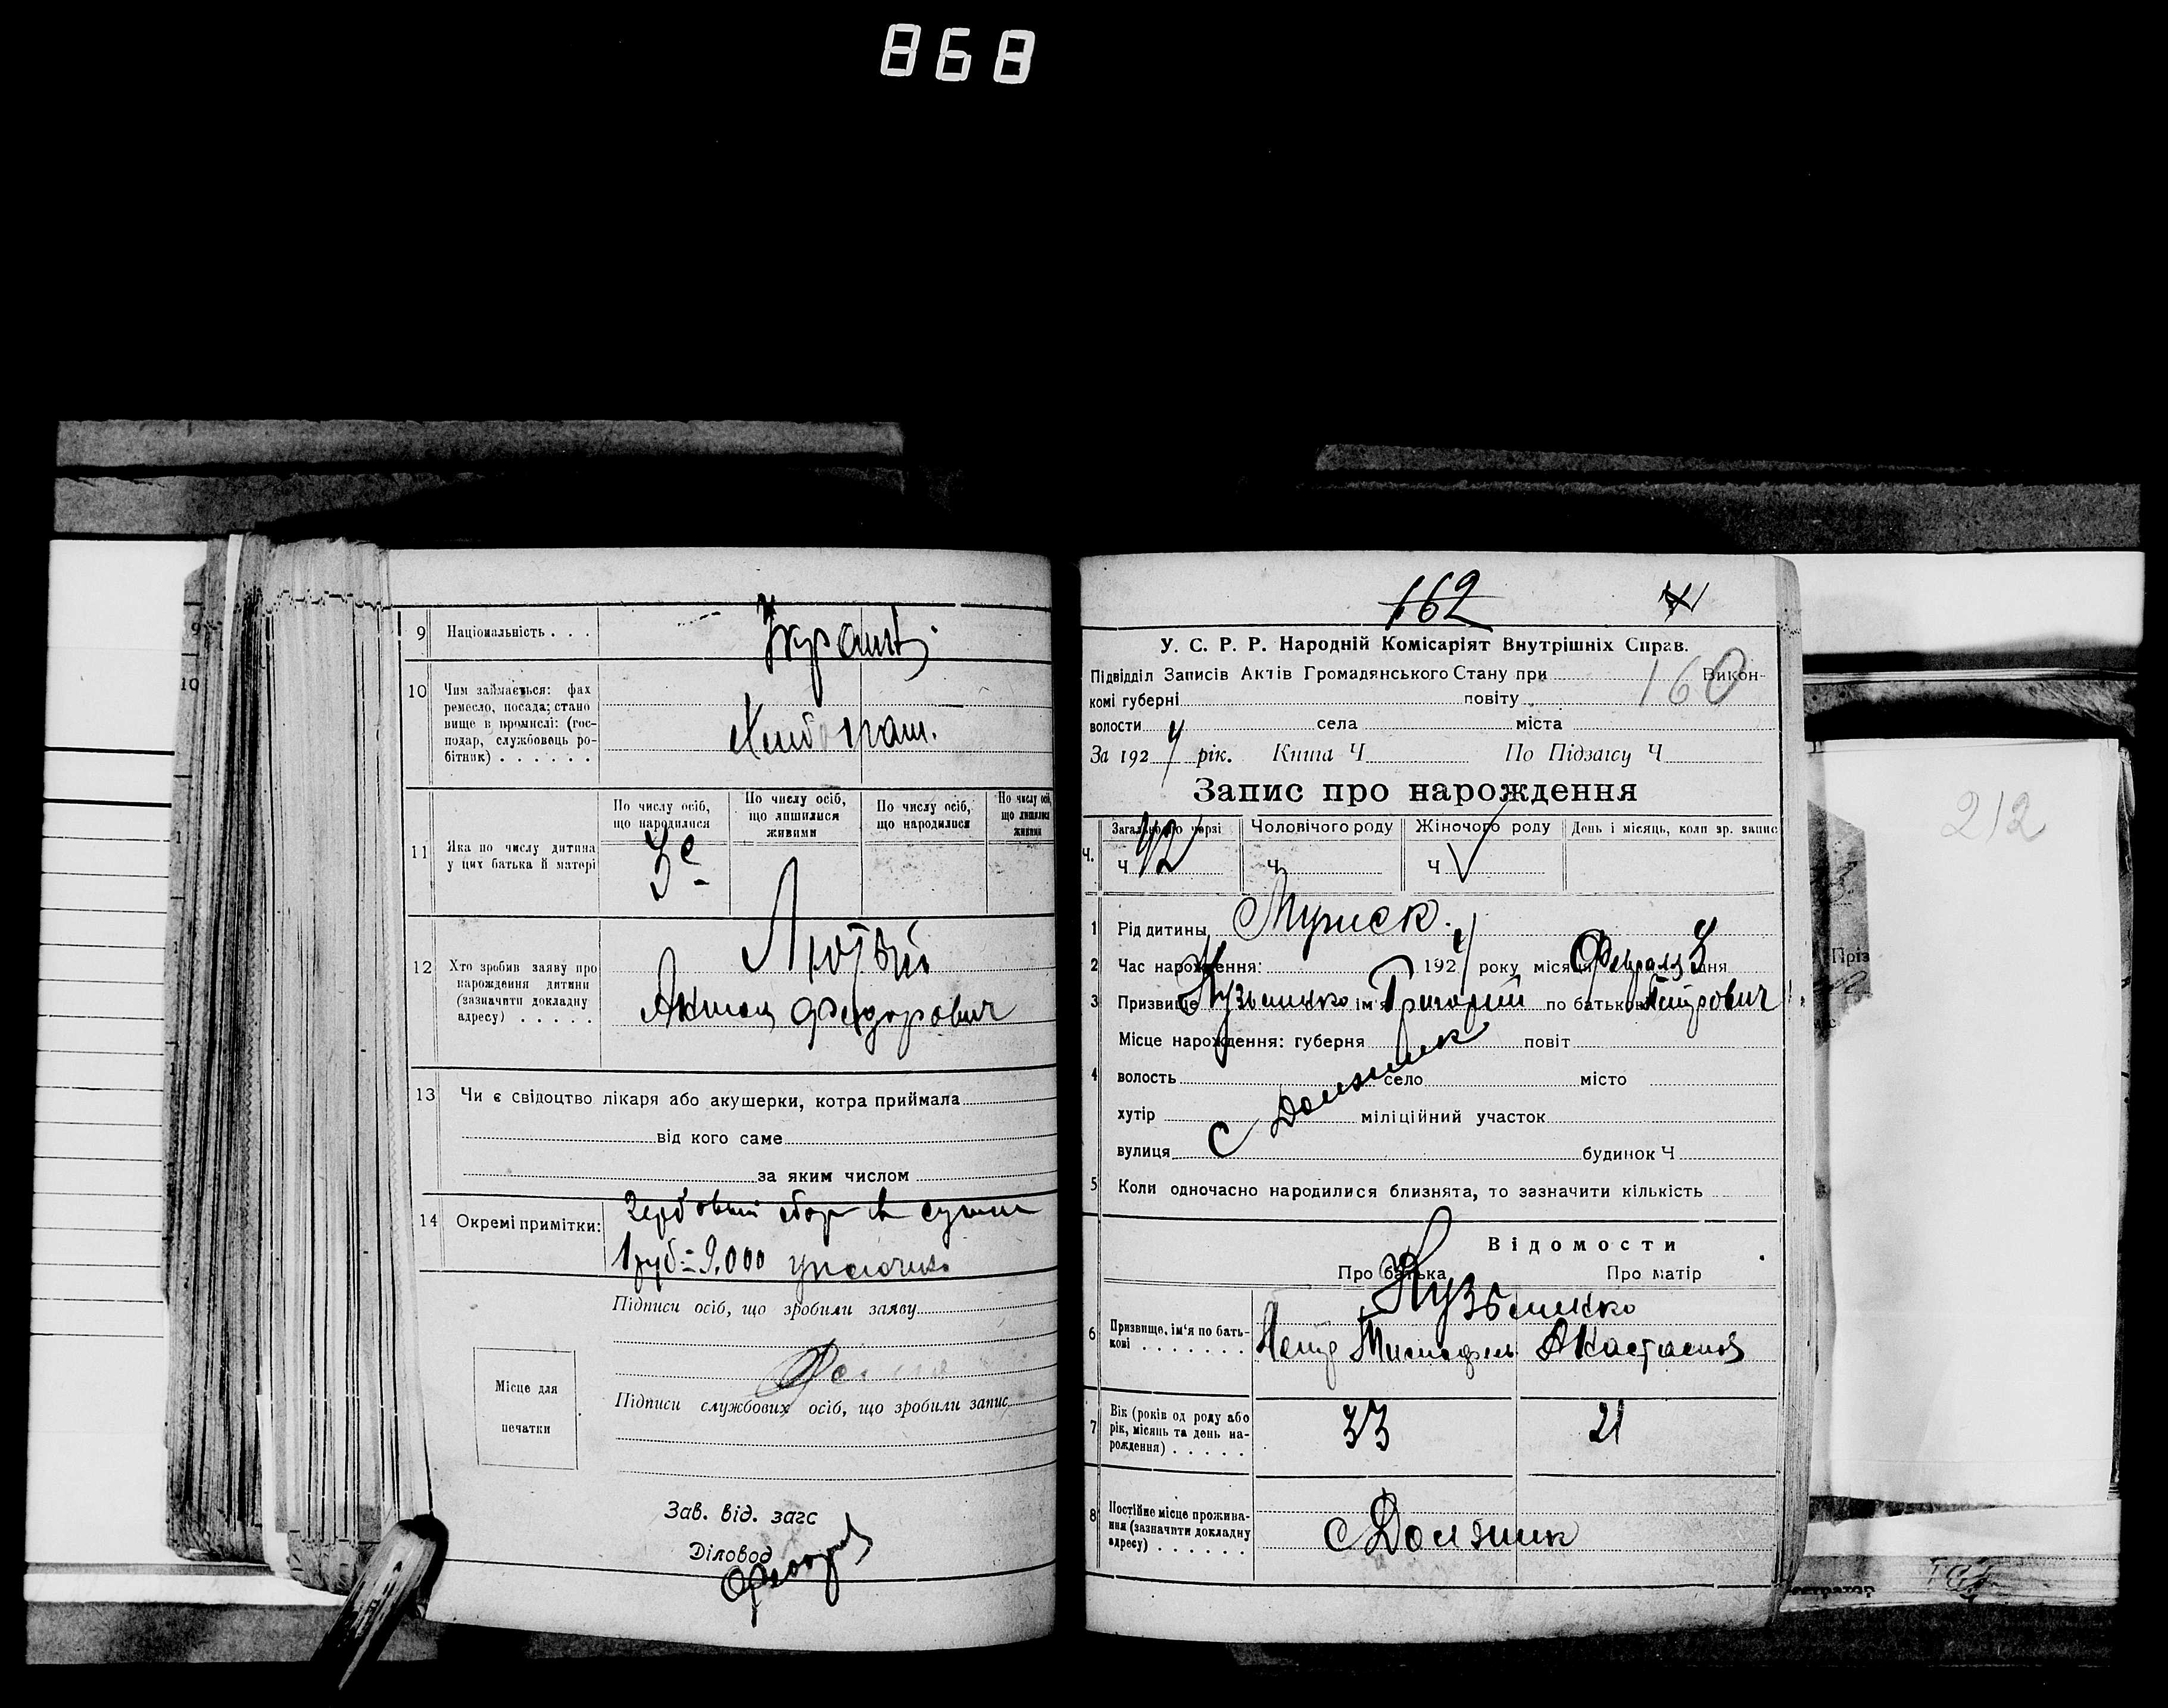 868
9 Національність . . . Украин.
10 Чим займається: фах
ремесло, посада; стано
вище в промислі: (гос-
подар, службовець ро-
бітник) . . . . . .
По числу осіб, що народилися
По числу осіб, що лишилися живими
По числу осіб, що народилися
По числу осіб, що лишилися живими
11 Яка по числу дитина
у цих батька й матері
3е
12 Хто зробив заяву про
нарождення дитини
(зазначити докладну
адресу) . . . . .
Лютый
Федорович
13 Чи є свідоцтво лікаря або акушерки, котра приймала
від кого саме
за яким числом
14 Окремі примітки: Гербовый сбор в сумме
1 руб = 9.000 уплочено
Підписи осіб, що зробили заяву
Підписи службових осіб, що зробили запис
Місце для
печатки
Зав. від. загс
Діловод
162
У. С. Р. Р. Народній Комісаріят Внутрішніх Справ.
160
Підвідділ Записів Актів Громадянського Стану при Викон-
комі губерні повіту
волости села міста
За 1924 рік. Книга Ч По Підзагсу Ч
Запис про нарождення
Ч. Загального черзі Чоловічого роду Жіночого роду День і місяць, коли зр. запис
Ч 42 Ч Ч
1 Рід дитины Мужск.
2 Час нарождення: 1924 року місяця Февраля 3 дня
3 Призвище Кузьменко ім'я Григорий по батькові Петрович
Місце нарождення: губерня повіт
4 волость село місто
хутір міліційний участок
с Должик
вулиця будинок Ч
5 Коли одночасно народилися близнята, то зазначити кількість
Відомости
Про батька Про матір
Кузьменко
6 Призвище, ім'я по бать-
кові . . . . . . .
Петр Анастасия
7 Вік (років од роду або
рік, місяць та день на-
рождення) . . . . .
33 21
8 Постійне місце прожива-
ння (зазначити докладну
адресу) . . . . . .
с Должик
212